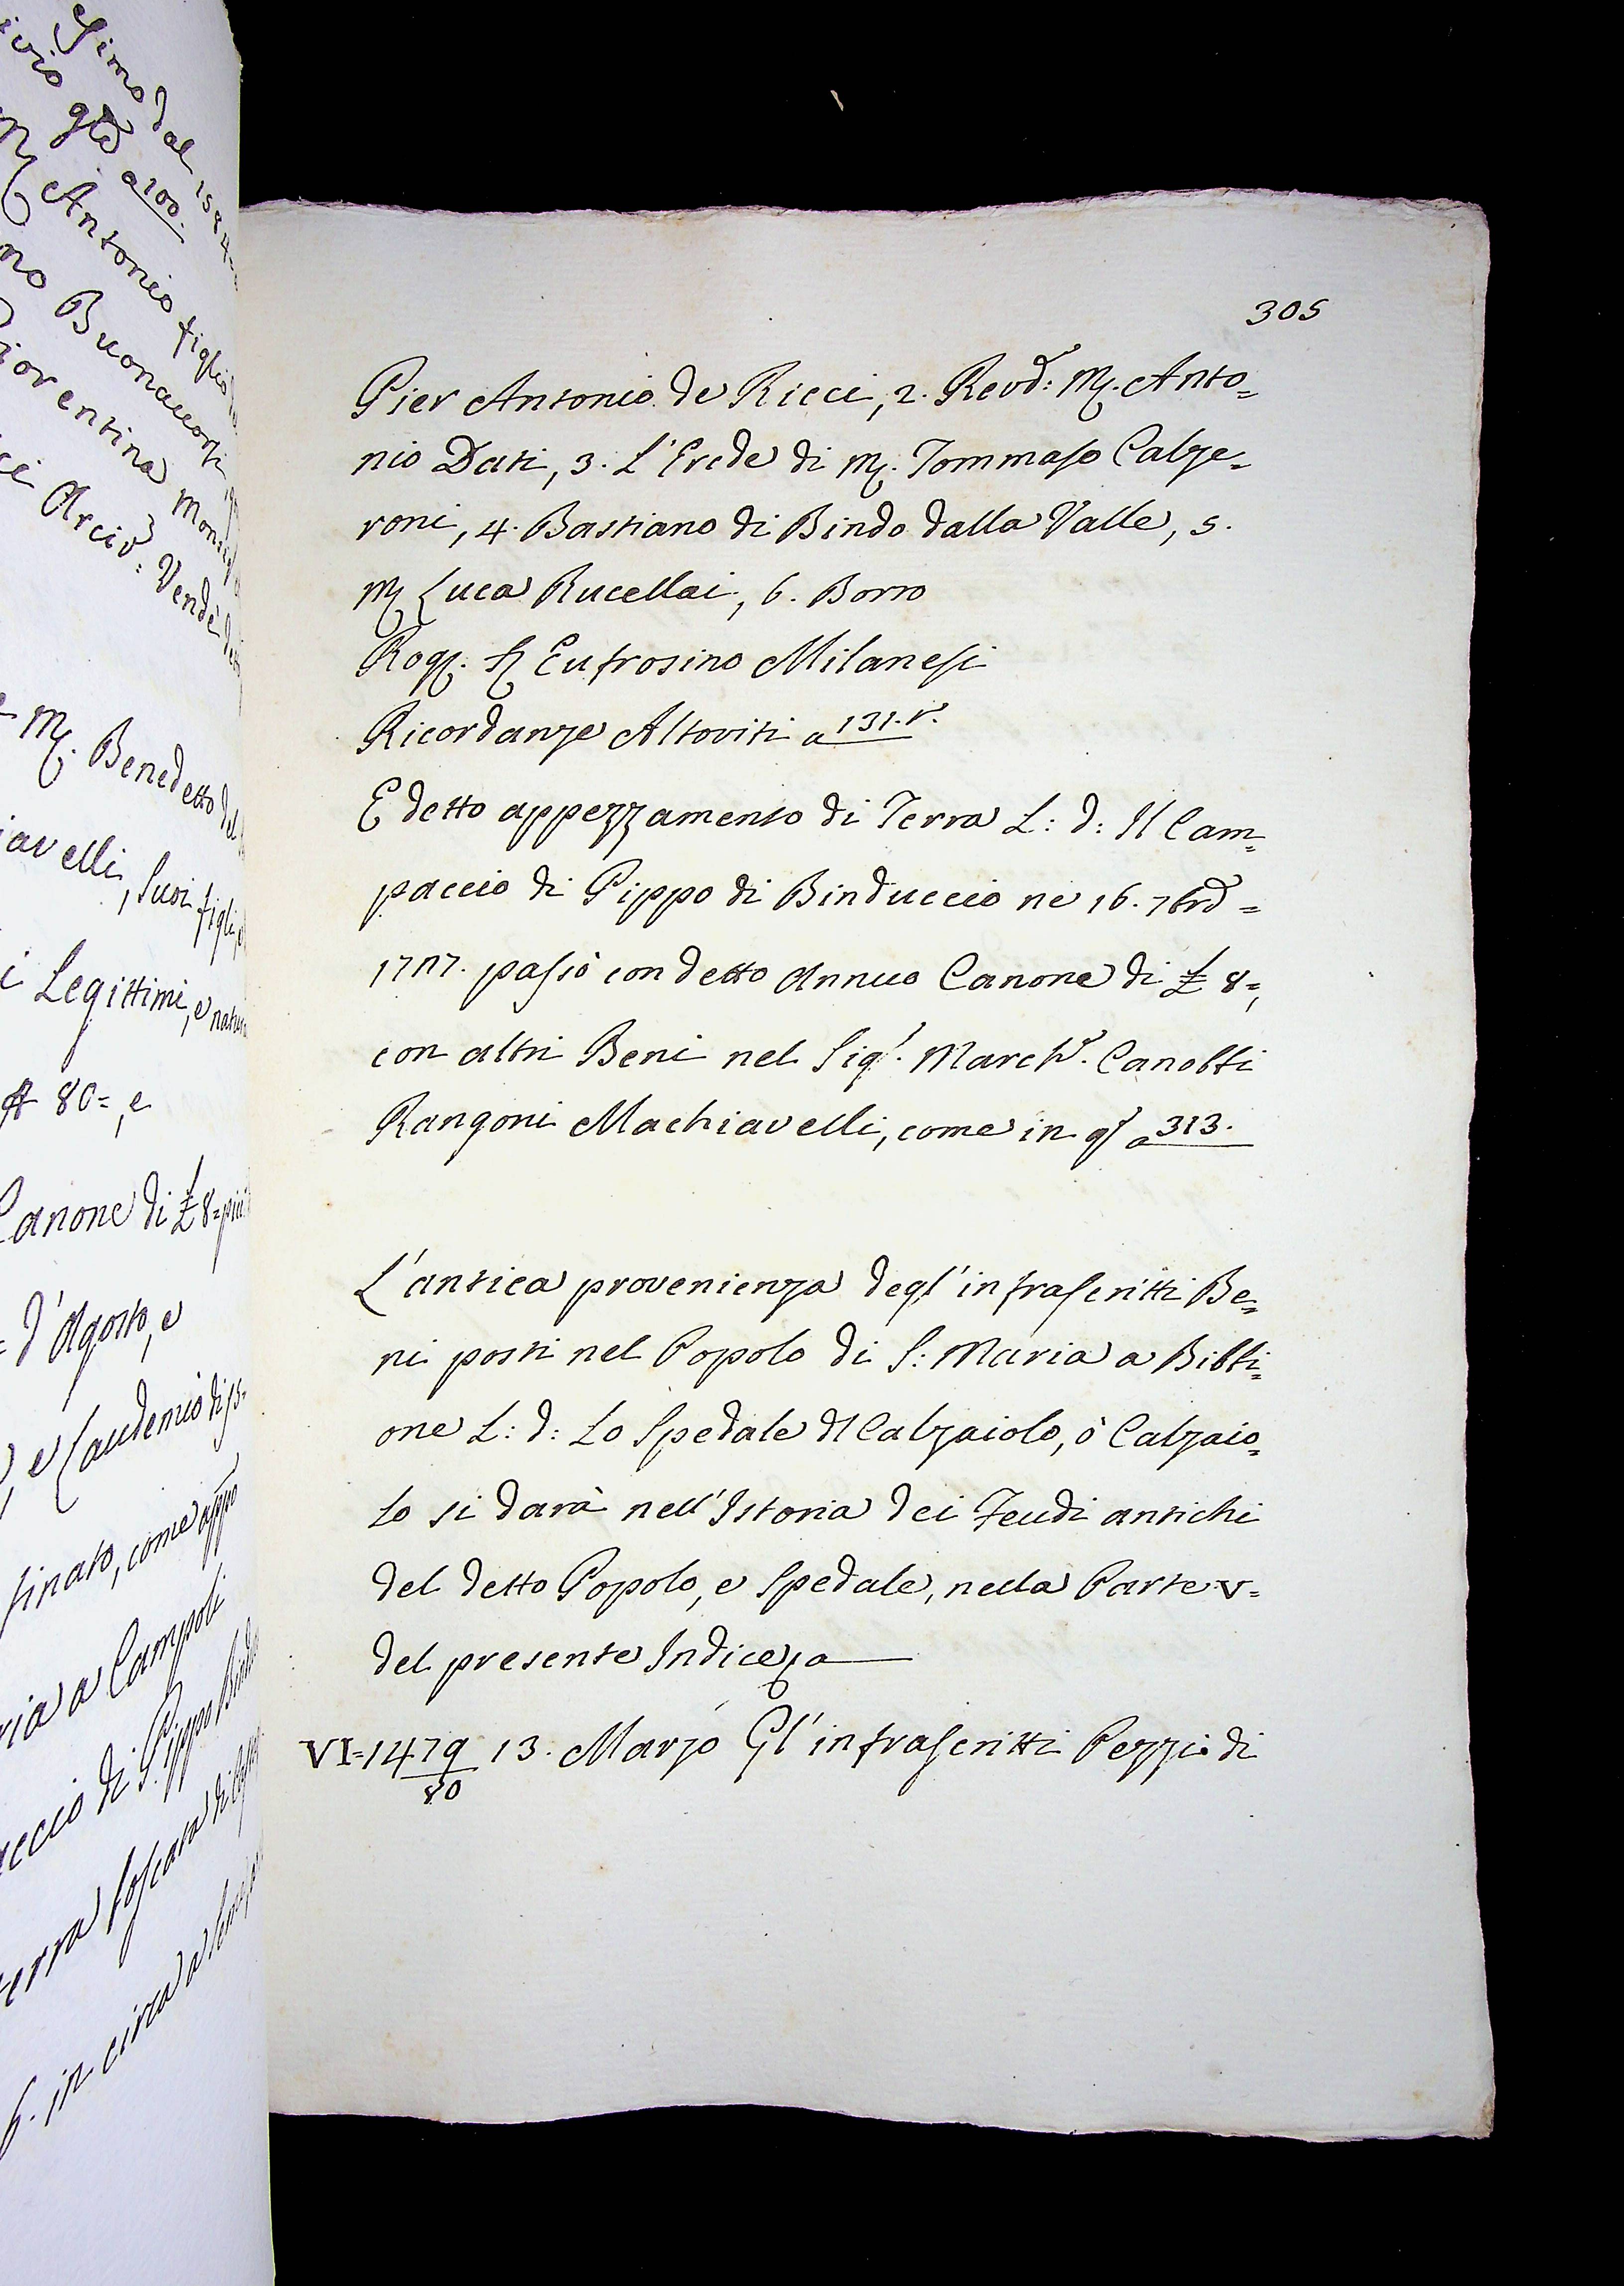 305
Pier Antonio de Ricci, 2. Revd: M. Anto=
nio Dati, 3. L'Erede di M. Tommaso Calze=
roni, 4. Bastiano di Bindo dalla Valle, 5.
M Luca Rucellai, 6. Borro
Rog. S Eufrosino Milanesi
Ricordanze Altoviti a 131. r.
E detto appezzamento di Terra L: d: Il Cam=
paccio di Pippo di Binduccio ne 16. 7bre =
passò con detto Annuo Canone di £ 8=,
con altri Beni nel Sigr. March. Canobbi
Rangoni Machiavelli, come in q a 313.
L'antica provenienza degl'infrascritti Be=
ni posti nel Popolo di S: Maria a Bibbi=
one L: d: Lo Spedale dl Calzaiolo, ò Calzaio=
lo si darà nell'Istoria dei Feudi antichi
del detto Popolo, e Spedale, nella Parte V=
del presente Indice a
VI=1479/80 13. Marzo Gl'infrascritti Pezzi di
Simo dal
gto a 100.
M Antonio figlio
no Buonaccorsi
iorentina Monsig
ci Arciv: Vendè
M. Benedetto del
iavelli, suoi figli, e
i Legittimi, e natura
80=, e
Canone di £ 8=
= d'Agosto, e
, e Laudemio di
sinato, come app
ria a Campoli
accio di Pippo Bindu
terra toscana di
6. in circa a